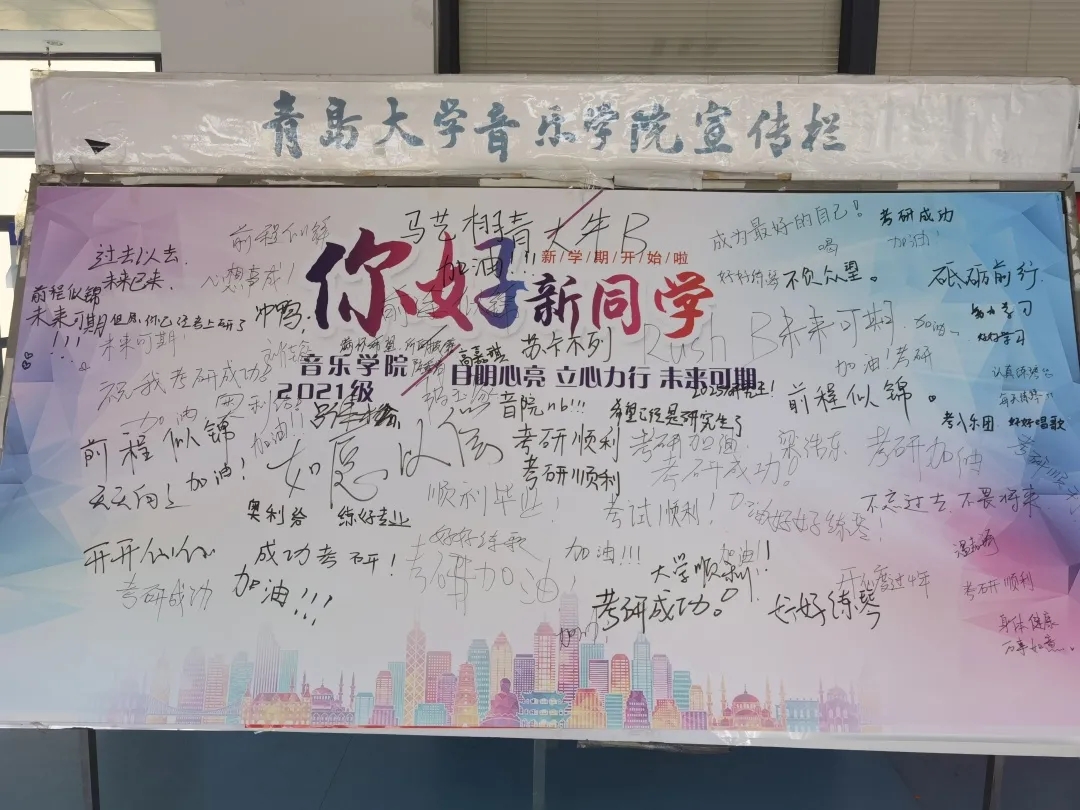 青岛大学音乐学院宣传栏
成为最好的自己！
考研成功
前程似锦
大牛B
加油！
过去以去，
未来已来，
心想事成！
加油!!!
新/学/期/开/始/啦
喝
好好练琴
不负众望。
砥砺前行
前程似锦
未来可期
!!!
冲鸭，
你好
新同学
Rush B
未来可期
加油~
努力学习
好好学习
未来可期！
苏卡不列
加油！考研
认真练琴
祝我考研成功
音乐学院
2021级
自明心亮 立心力行 未来可期
音院nb!!!
希望已经是研究生了
前程似锦。
考入乐团
好好唱歌
加油
加油!!
前程似锦
加油！
如愿以偿
考研顺利
考研顺利
考研加油
考研成功。
梁浩东
考研加油
天天向上
奥利给
练好专业
顺利毕业！
考试顺利！
好好练琴！
不忘过去，不畏将来
开开心心
成功考研！
好好练歌
加油!!!
加油!!
大学顺利!!
考研成功
加油!!!
考研加油！
考研成功。
好好练琴
开心度过4年
考研顺利
身体健康
万事如意。